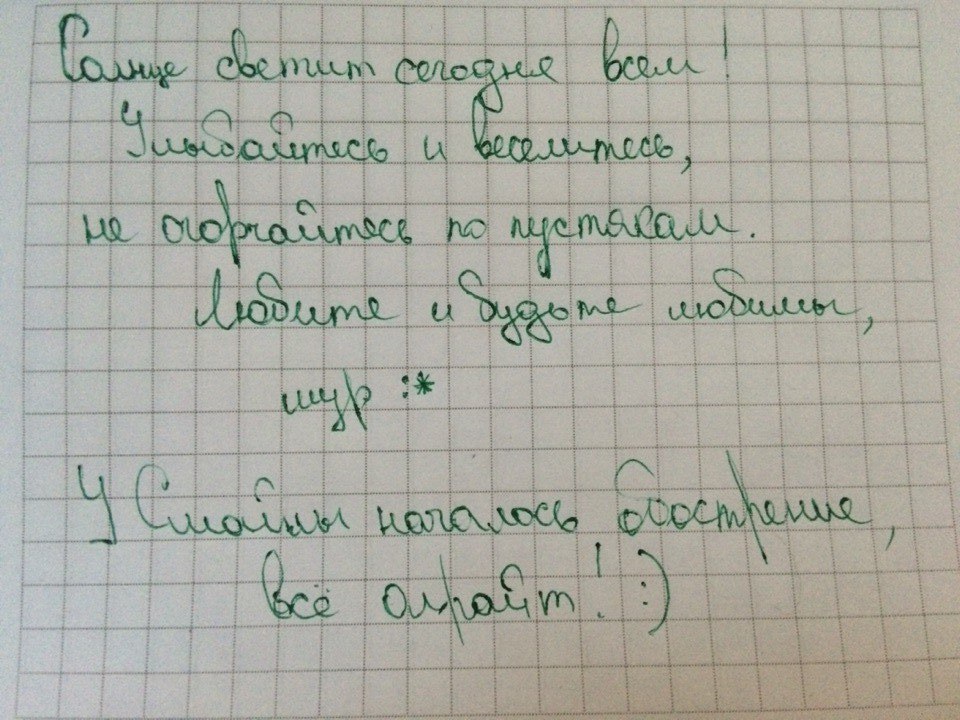 Солнце светит сегодня всем!
Улыбайтесь и веселитесь,
не огорчайтесь по пустякам.
Любите и будьте любимы,
шур :*
У Смайлы началось обострение,
всё олрайт! :)